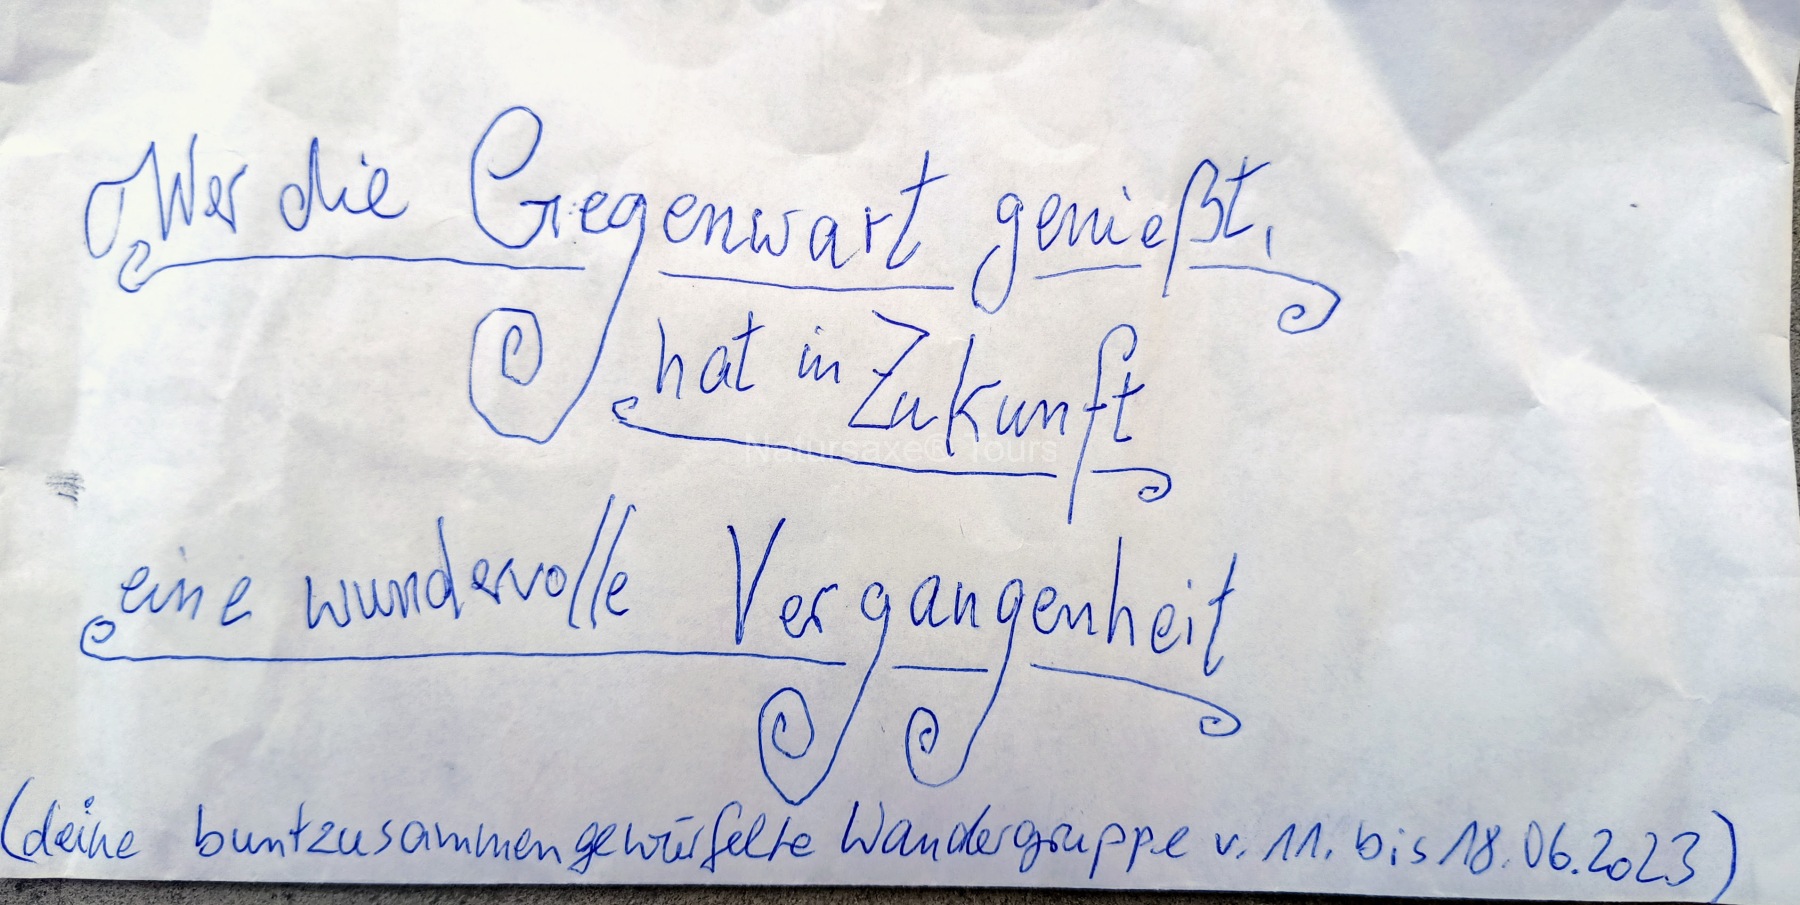 Wer die Gegenwart genießt,
hat in Zukunft
Natursaxe® Tours
eine wundervolle Vergangenheit
(deine buntzusammengewürfelte Wandergruppe v. 11. bis 18.06.2023)